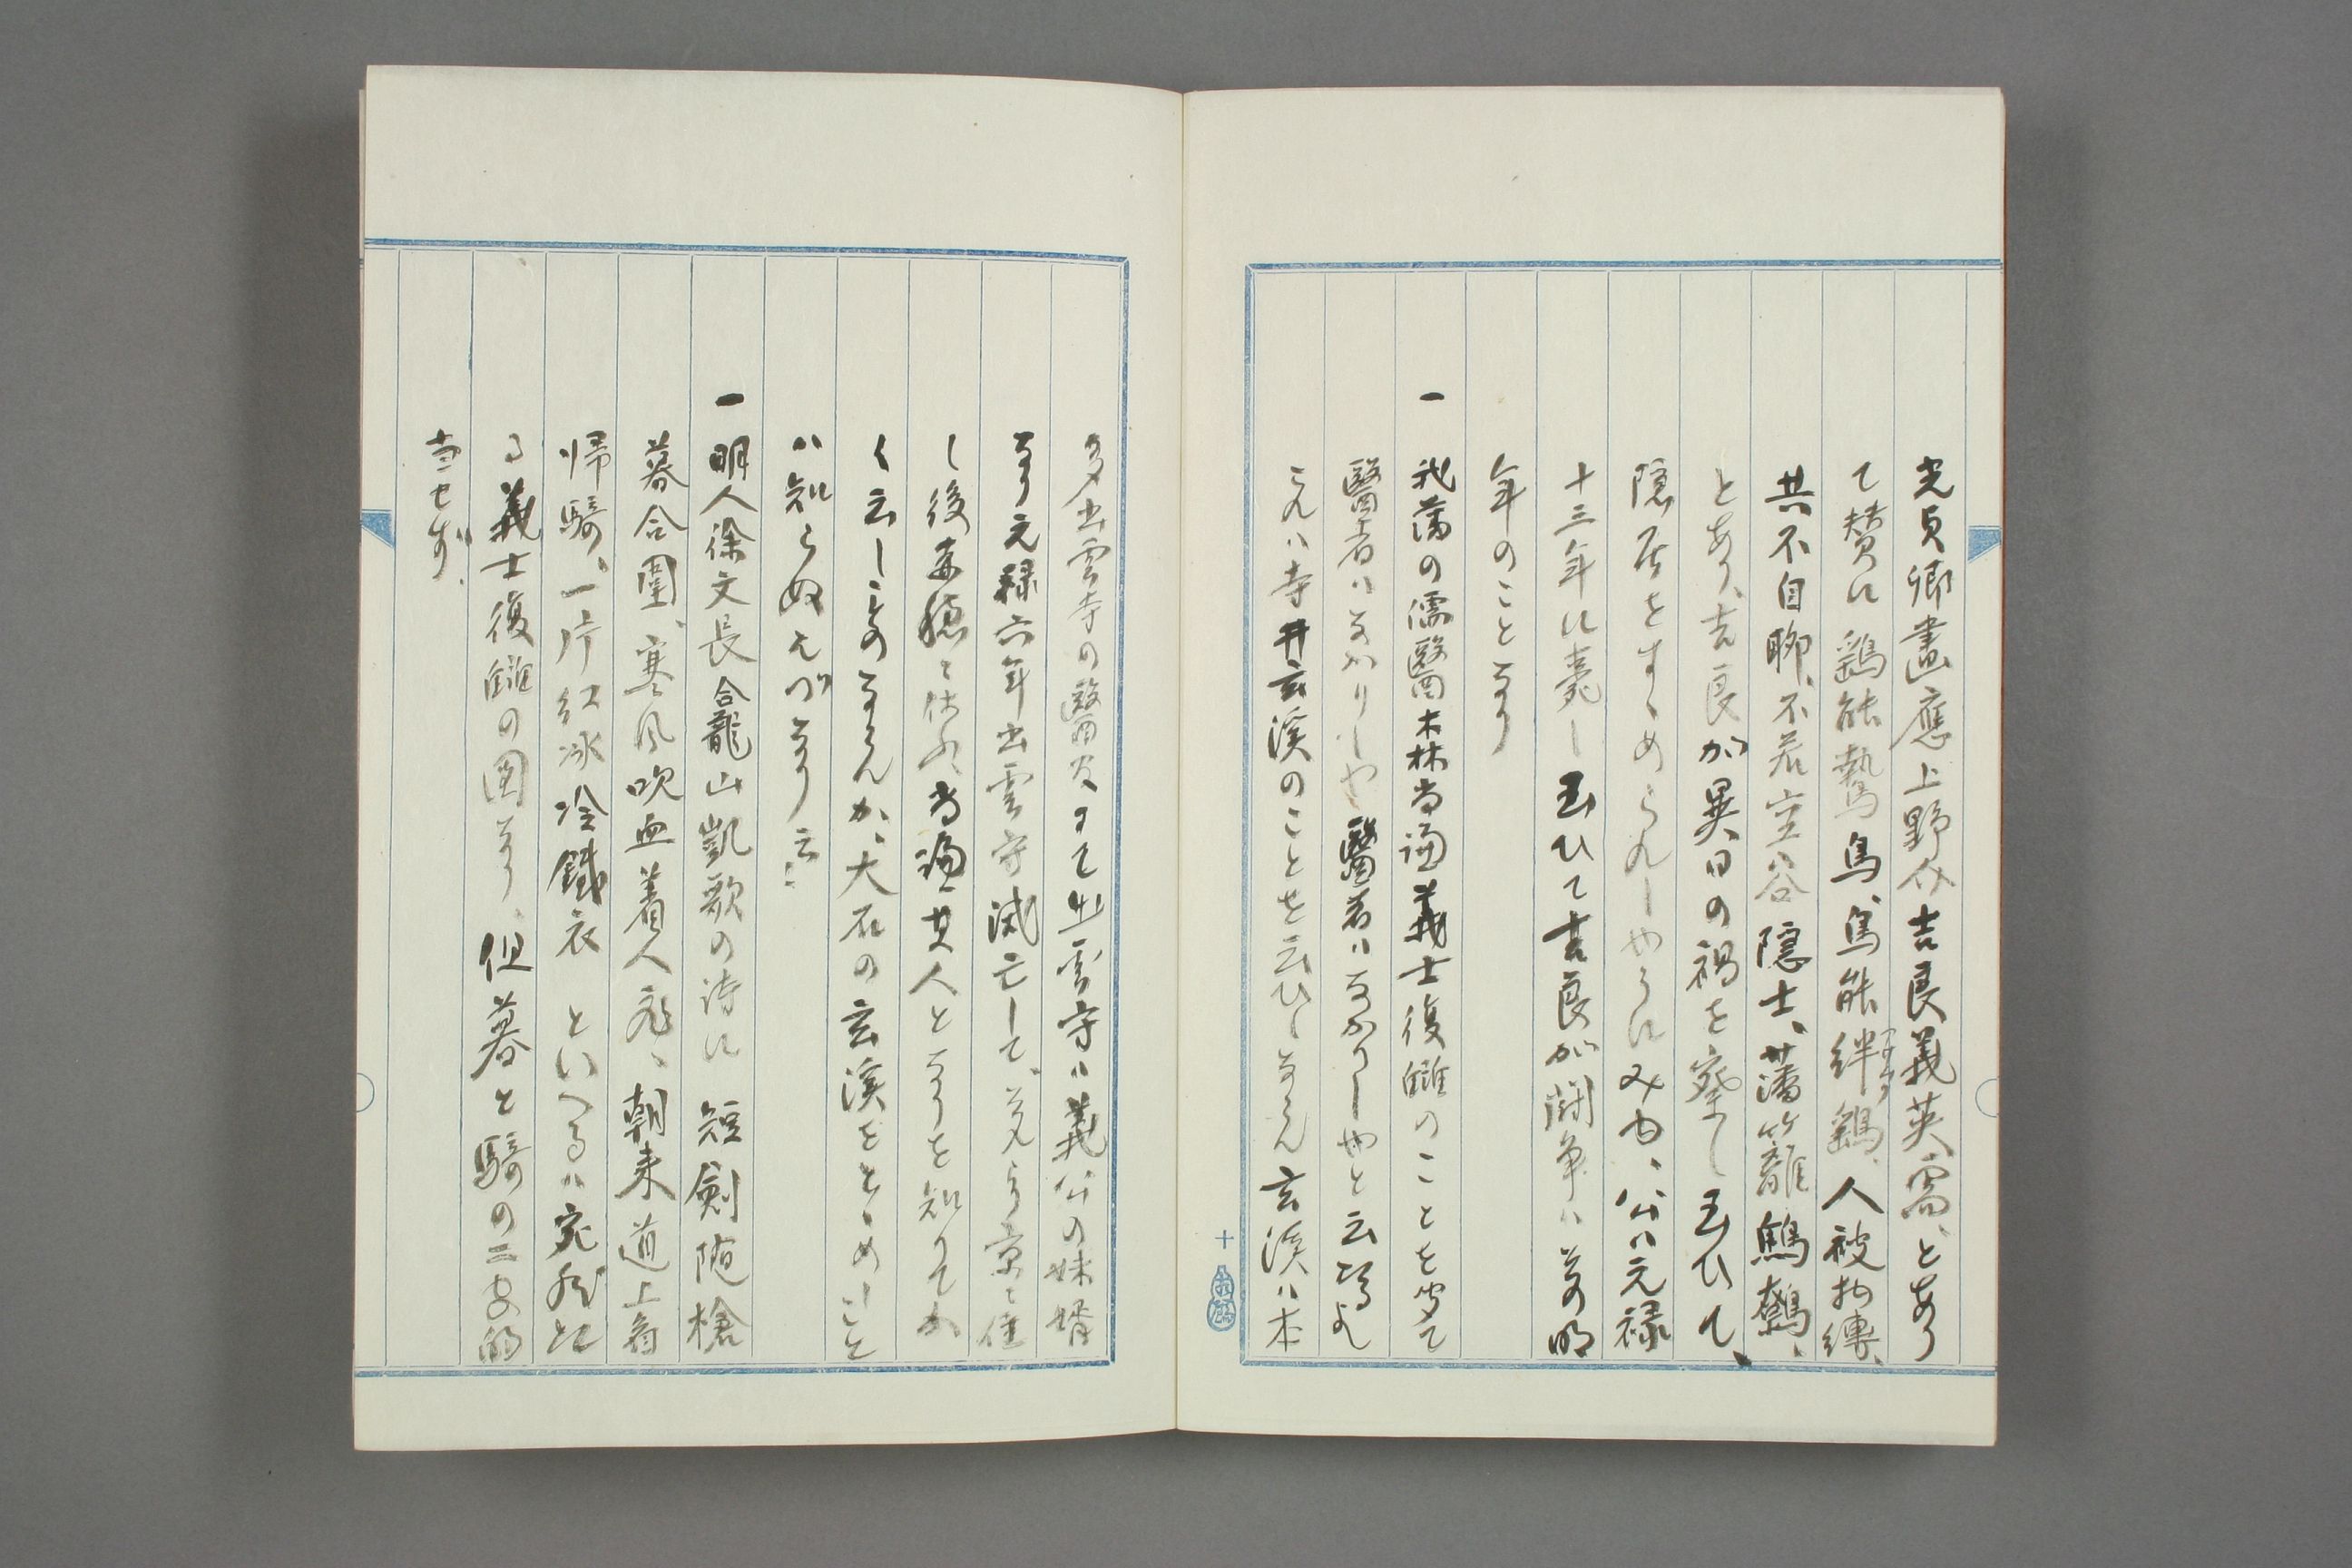 光貞卿畫應上野介吉良義英需、とあり
て賛に 鶏能鷙鳥、鳥能絆鶏、人被拘縛、
共不自聊、不若空谷隠士、藩籬鷦鷯、
とあり、吉良が異日の禍を察し玉ひて、
隠居をすゝめられしやうにみゆ、公ハ元禄
十三年に薨し玉ひて吉良が闘争ハ其明
年のことなり
一 我藩の儒醫木森当適義士復讎のことを聞て
醫者ハなかりしや醫者ハなかりしやと云
これハ寺井玄溪のことを云ひしならん玄溪ハ本
多出雲守の醫なて出雲守ハ義公の妹婿
なり元禄六年出雲守滅亡して、夫より京に住
し後赤穂に仕ふ、当適其人となりを知りてか
く云しものならんか、大石の玄溪をとゝめしこと
ハ知らぬもがなり云々
一 明人徐文長合龍山凱歌の詩に 短劍随槍
暮合圍、寒風吹血着人飛、朝来道上看
帰騎、一片紅冰冷鐵衣 といへるハ宛然た
る義士復讎の図なり、但暮と騎の二字的
当せず、
十